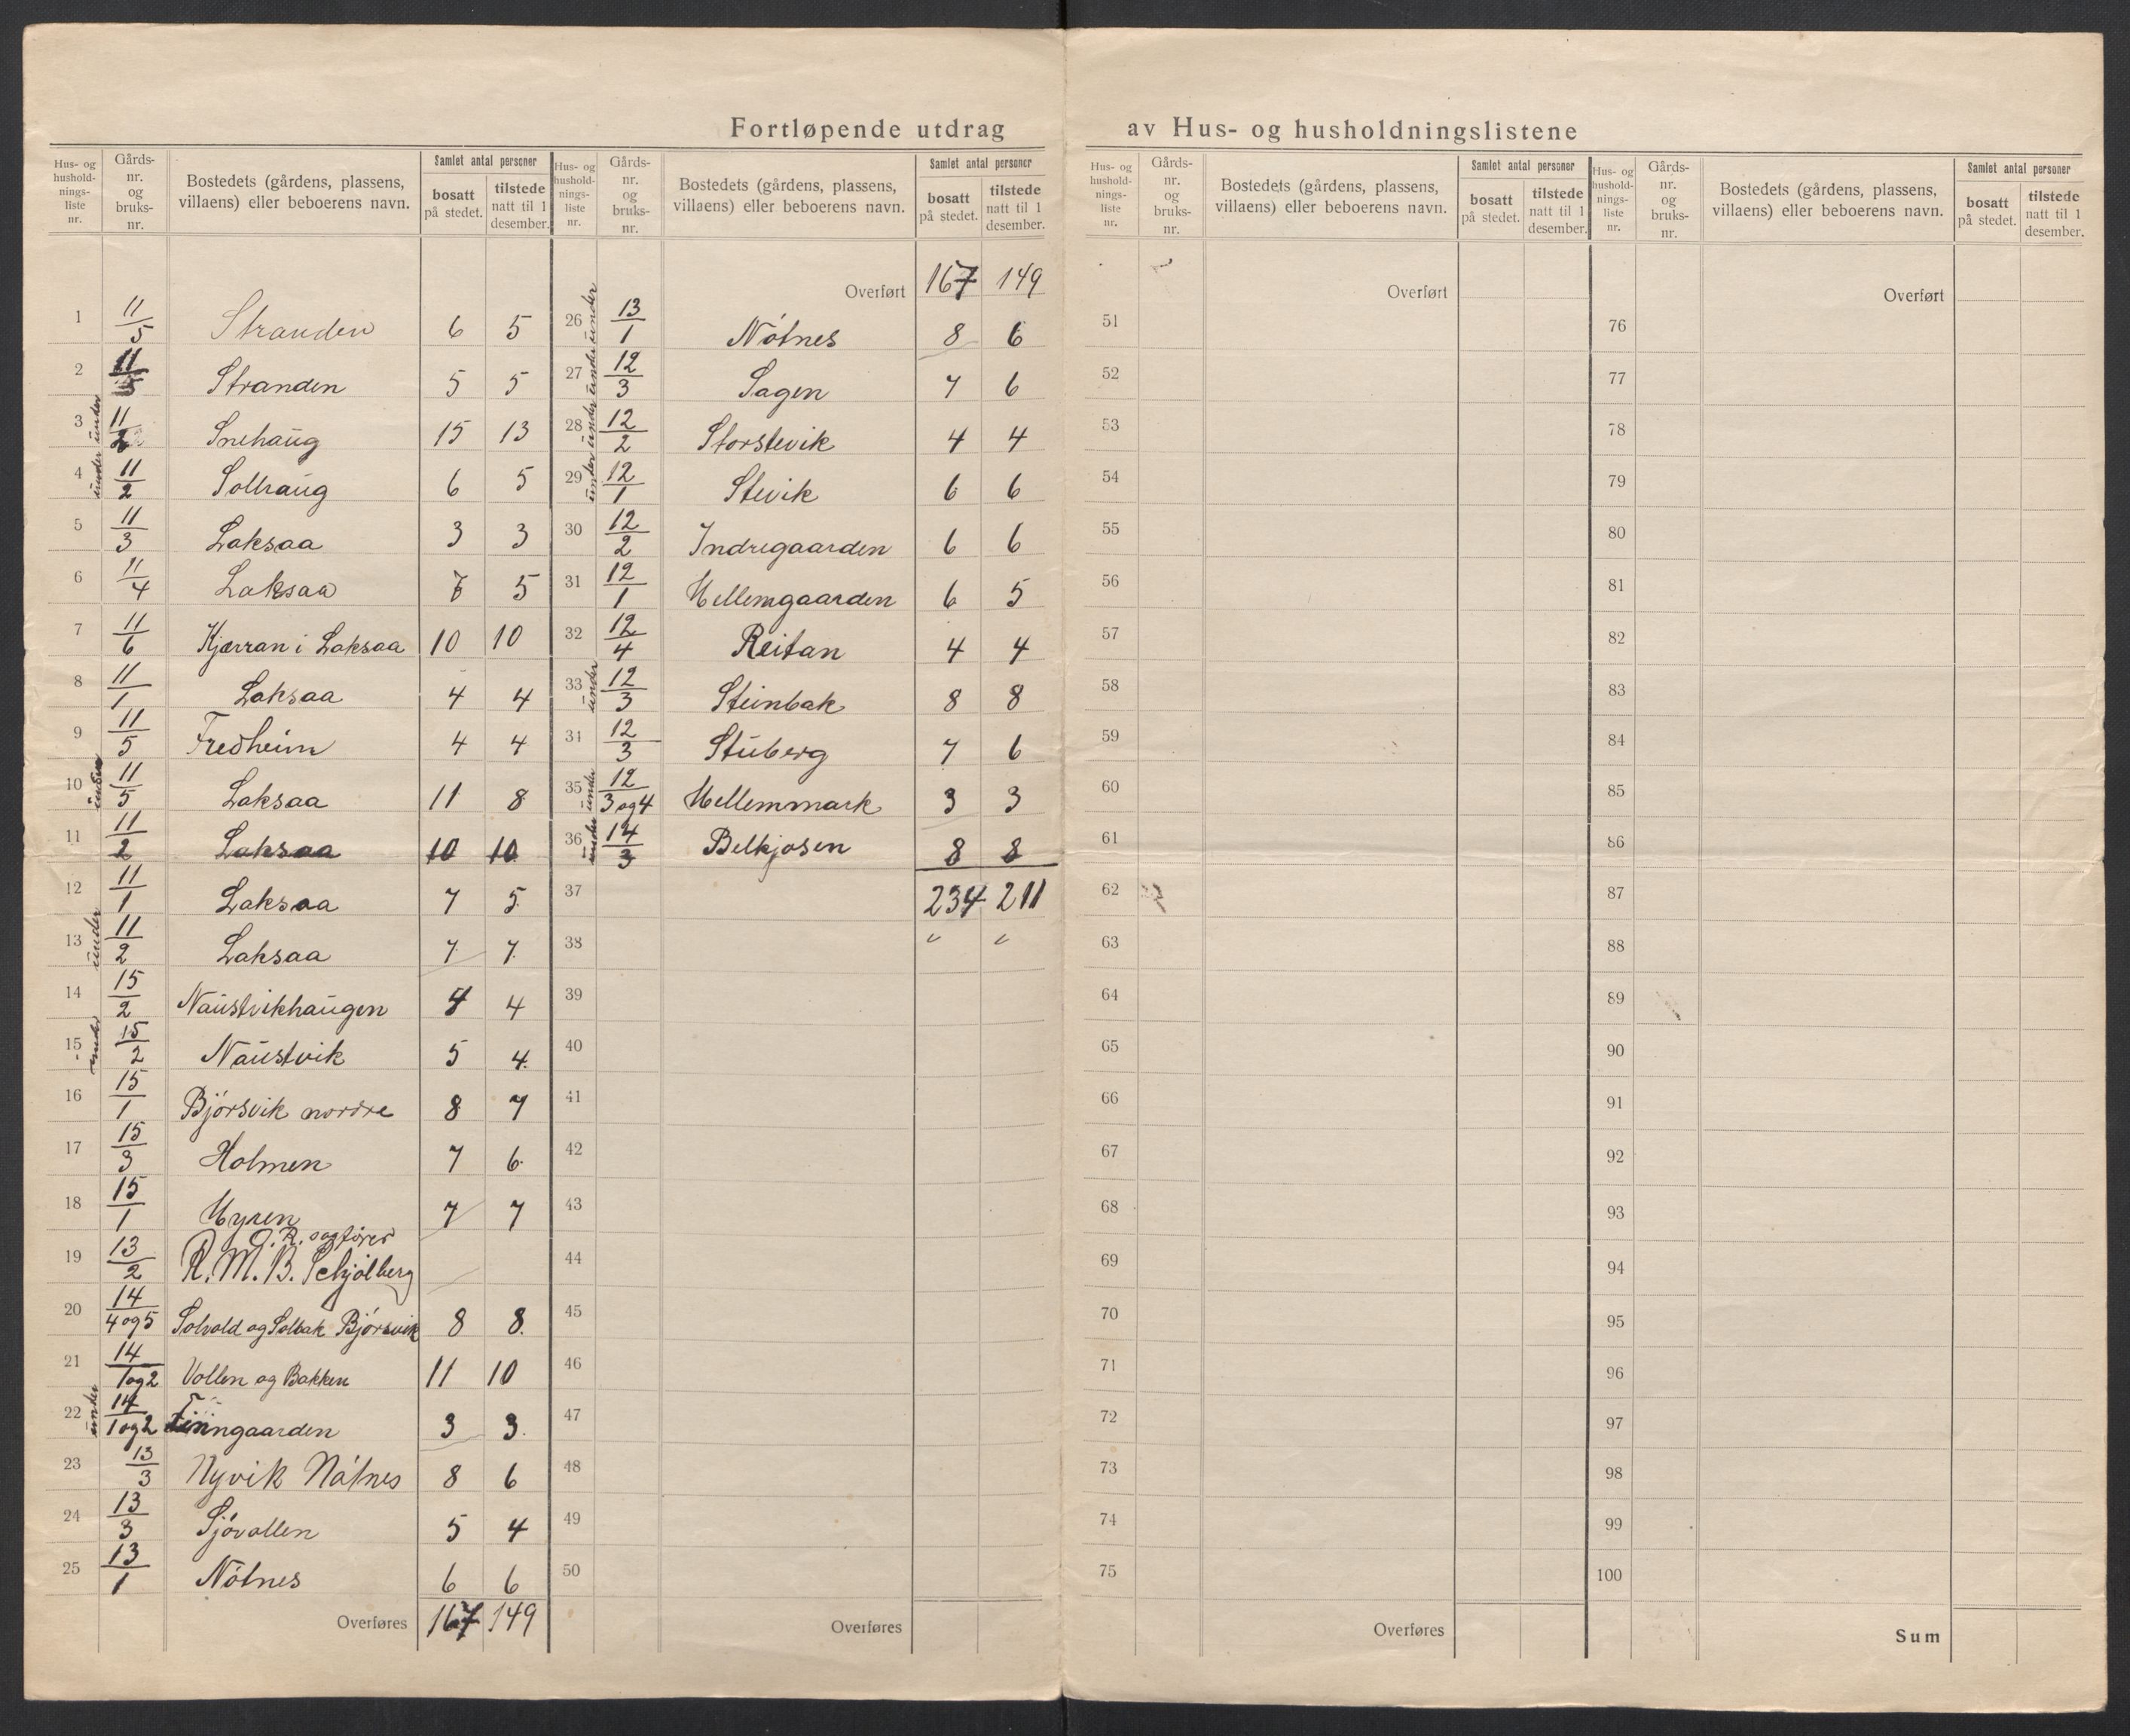 Fortløpende utdrag av Hus- og husholdningslistene
Hus- og husholdnings-liste nr. | Gårds-nr. og bruks-nr. | Bostedets (gårdens, plassens, villaens) eller beboerens navn. | Samlet antal personer: bosatt på stedet. | tilstede natt til 1 desember.
1 11/5 Stranden 6 5
2 11/5 Stranden 5 5
3 under 11/2 Snehaug 15 13
4 under 11/2 Solhaug 6 5
5 11/3 Laksaa 3 3
6 11/4 Laksaa 5
7 11/6 Kjærran i Laksaa 10 10
8 11/1 Laksaa 4 4
9 11/5 Fredheim 4 4
10 under 11/5 Laksaa 11 8
11 11/2 Laksaa 10 10
12 11/1 Laksaa 7 5
13 under 11/2 Laksaa 7 7
14 15/2 Naustvikhaugen 4 4
15 under 15/2 Naustvik 5 4
16 15/1 Bjórsvik nordre 8 7
17 15/3 Holmen 7 6
18 15/1 Myren 7 7
O. R. sagfører
19 13/2 R. M. B. Schjólberg
20 14/4 og 5 Solvold og Solbak Bjórsvik 8 8
21 14/1 og 2 Vollen og Bakken 11 10
22 under 14/1 og 2 Finngaarden 3 3
23 13/3 Nyvik Nótnes 8 6
24 13/3 Sjóvollen 5 4
25 13/1 Nótnes 6 6
Overføres 167 149
Hus- og husholdnings-liste nr. | Gårds-nr. og bruks-nr. | Bostedets (gårdens, plassens, villaens) eller beboerens navn. | Samlet antal personer: bosatt på stedet. | tilstede natt til 1 desember.
Overført 167 149
26 under 13/1 Nótnes 8 6
27 under 12/3 Sagen 7 6
28 under 12/2 Storstevik 4 4
29 under 12/1 Stevik 6 6
30 12/2 Indregaarden 6 6
31 12/1 Mellemgaarden 6 5
32 12/4 Reitan 4 4
33 under 12/3 Steinbak 8 8
34 12/3 Stuberg 7 6
35 under 12/3 og 4 Mellemmark 3 3
36 under 14/3 Belkjosen 8 8
37 234 211
38 " "
39
40
41
42
43
44
45
46
47
48
49
50
Overføres
Hus- og husholdnings-liste nr. | Gårds-nr. og bruks-nr. | Bostedets (gårdens, plassens, villaens) eller beboerens navn. | Samlet antal personer: bosatt på stedet. | tilstede natt til 1 desember.
Overført
51
52
53
54
55
56
57
58
59
60
61
62
63
64
65
66
67
68
69
70
71
72
73
74
75
Overføres
Hus- og husholdnings-liste nr. | Gårds-nr. og bruks-nr. | Bostedets (gårdens, plassens, villaens) eller beboerens navn. | Samlet antal personer: bosatt på stedet. | tilstede natt til 1 desember.
Overført
76
77
78
79
80
81
82
83
84
85
86
87
88
89
90
91
92
93
94
95
96
97
98
99
100
Sum